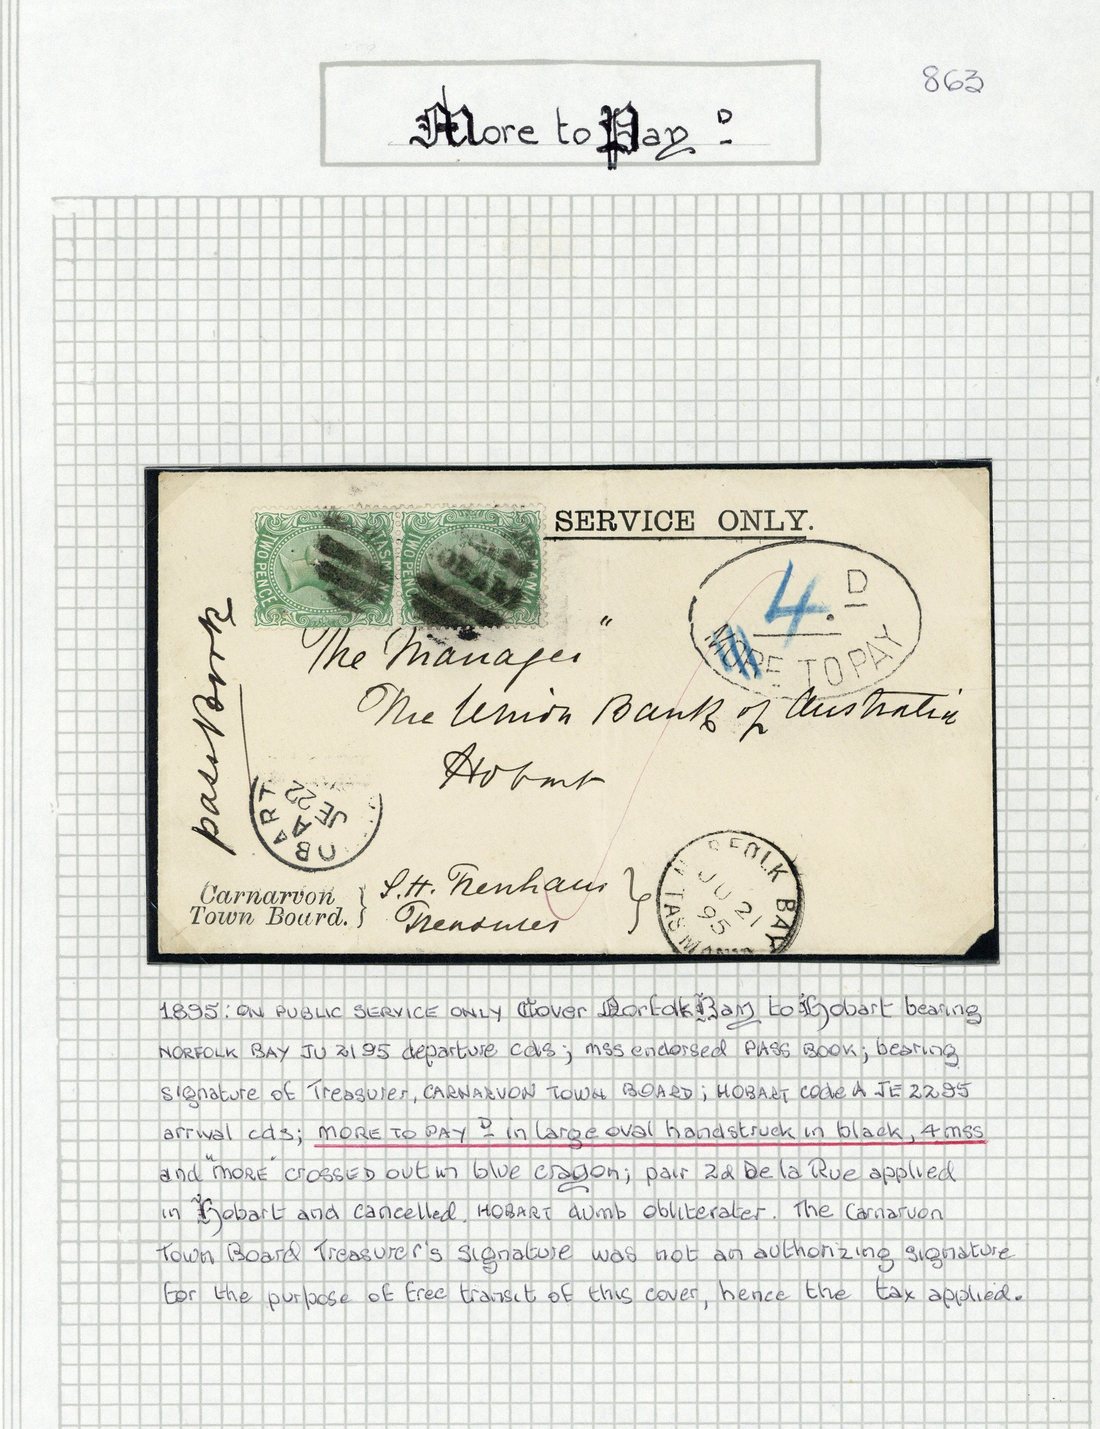 863
More to Pay D
SERVICE ONLY.
TWO PENCE TASM
TWO PENC MANIA
4. D
MORE TO PAY
"
The Manager
The Union Bank of Australia
Hobart
pass Book
OBART
A
JE 22
Carnarvon
Town Board.
S.H. Trenham
Treasurer
RFOLK BAY
JU 21
95
TASMANIA
1895: ON PUBLIC SERVICE ONLY Cover Norfolk Bay to Hobart bearing
NORFOLK BAY JU 21 95 departure cds; mss endorsed PASS BOOK; bearing
signature of Treasurer, CARNARVON TOWN BOARD; HOBART code A JE 22 95
arrival cds; MORE TO PAY D in large oval handstruck in black, 4 mss
and "MORE" crossed out in blue crayon; pair 2d De la Rue applied
in Hobart and cancelled HOBART dumb obliterater. The Carnarvon
Town Board Treasurer's signature was not an authorizing signature
for the purpose of free transit of this cover, hence the tax applied.